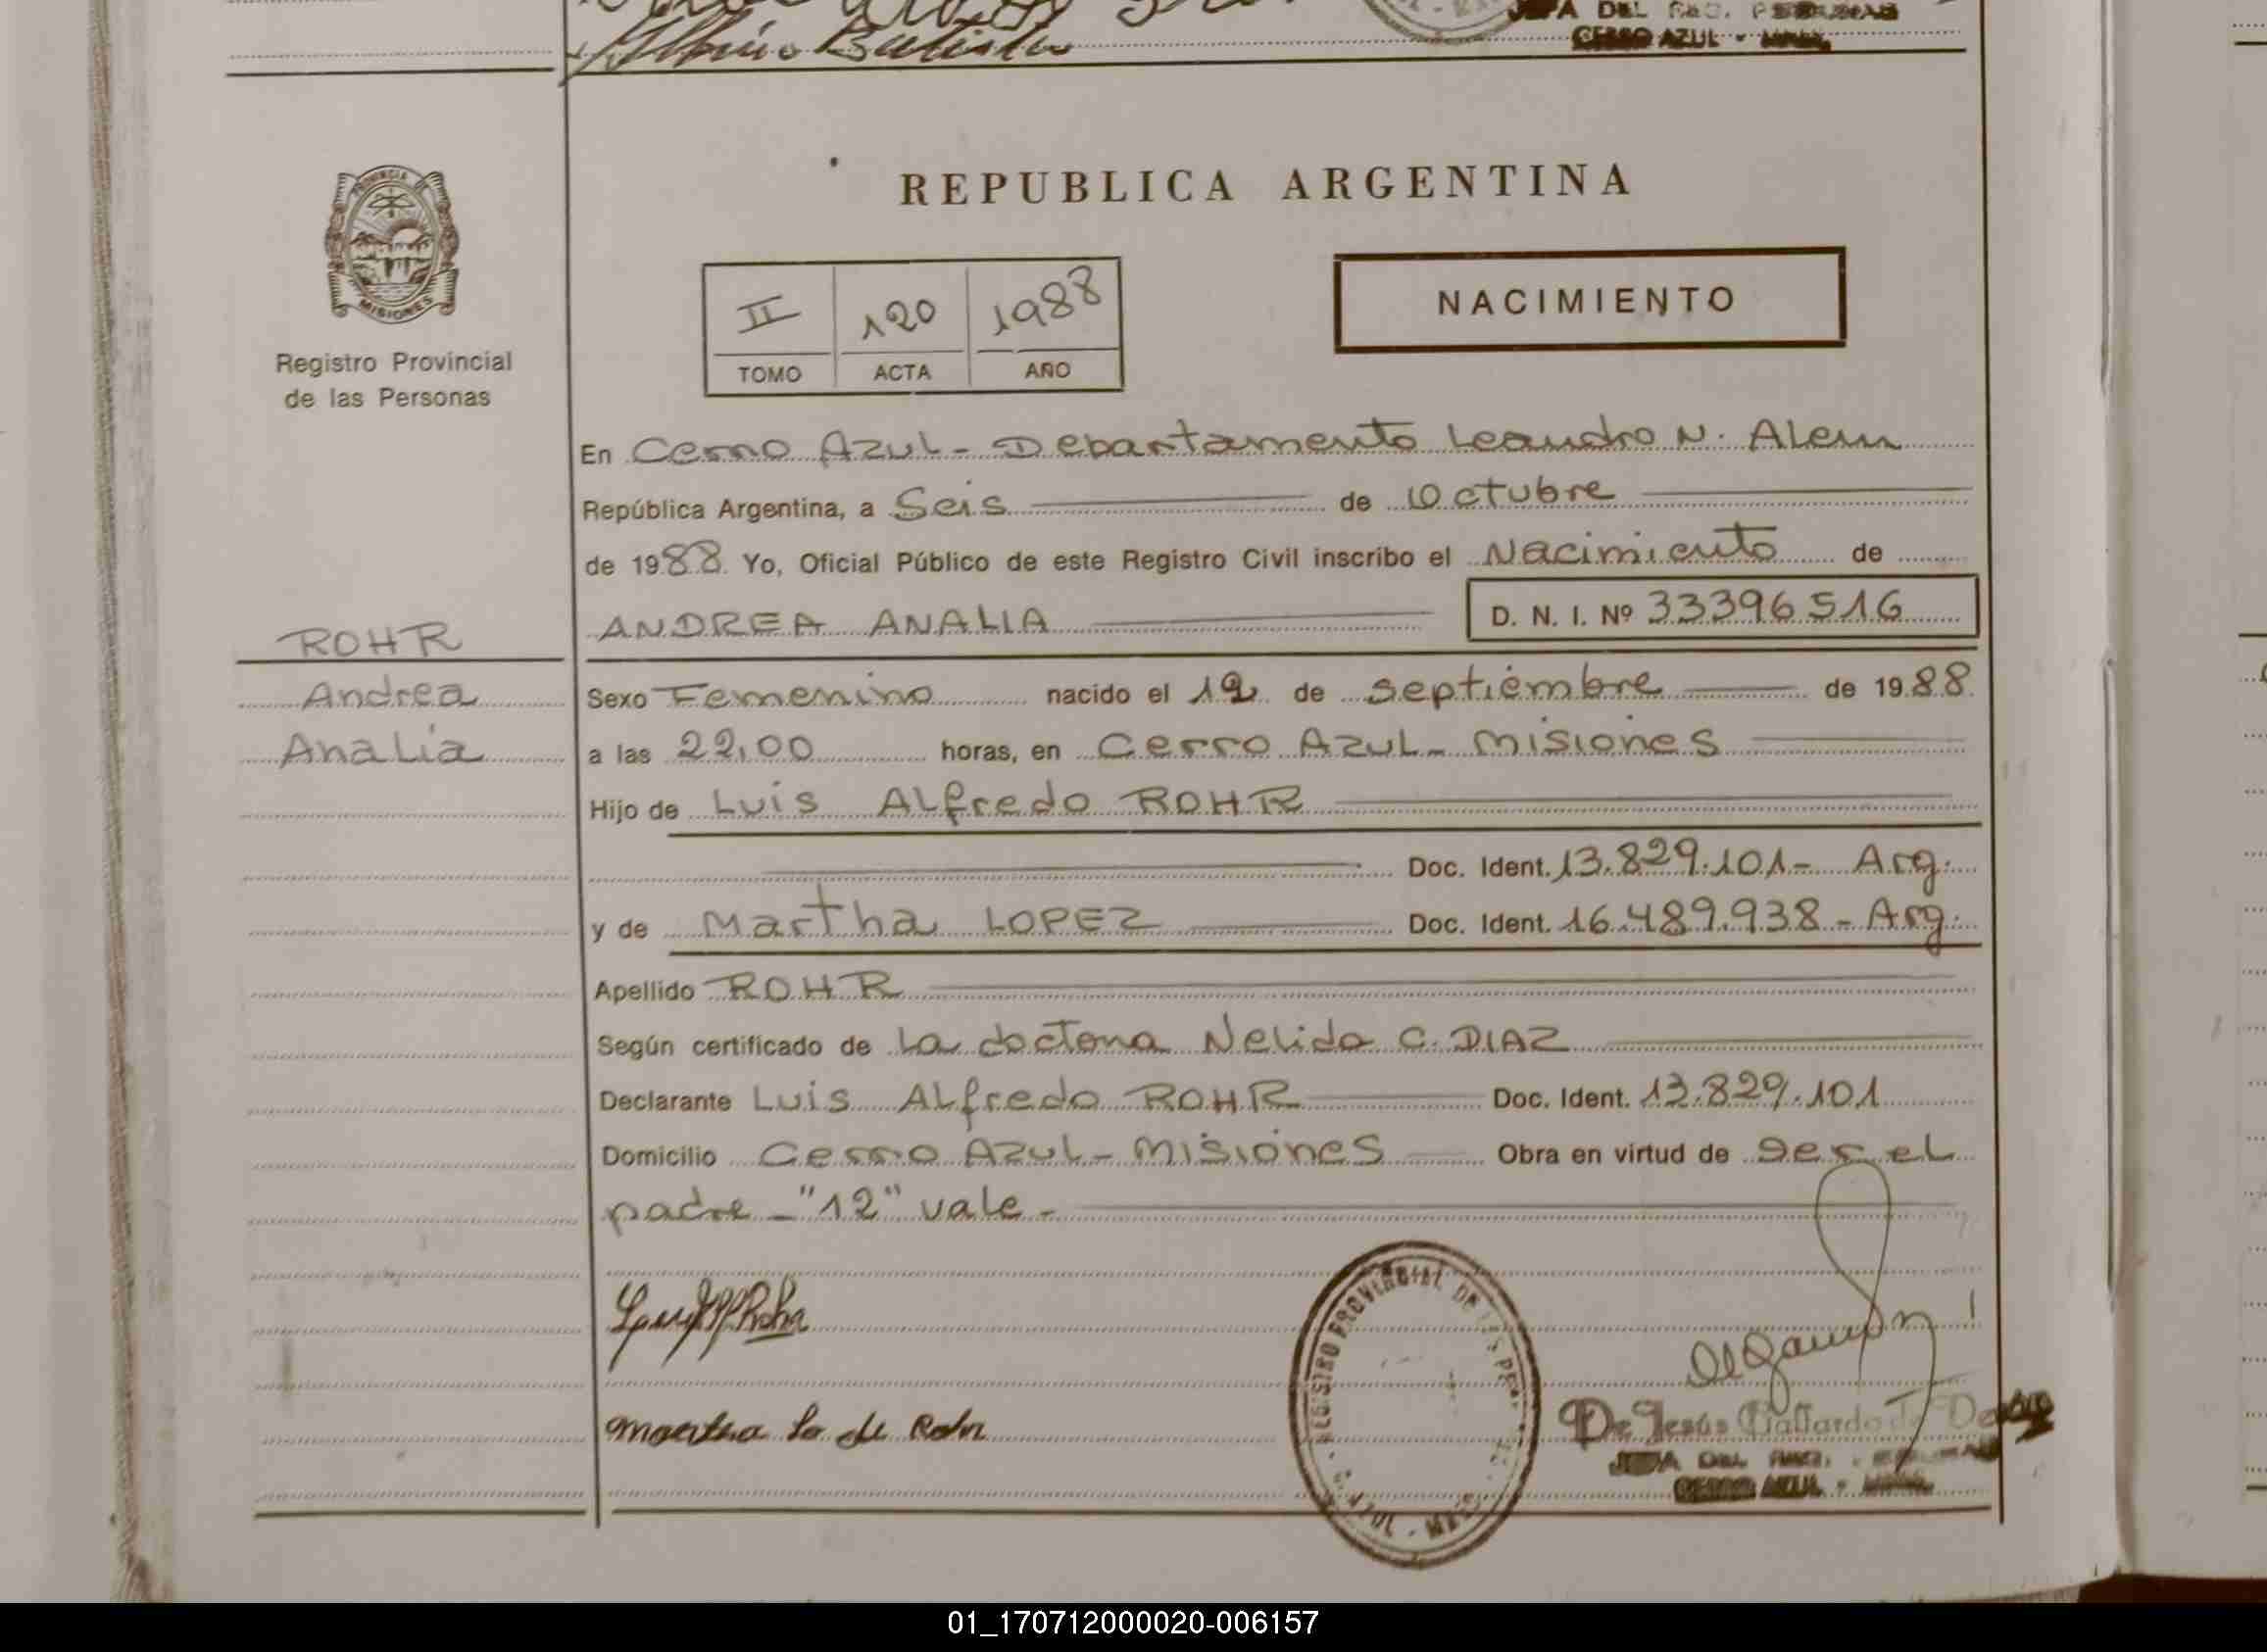 Albino Batista
JEFA DEL REG.
CERRO AZUL - MNES.
PROVINCIA DE
MISIONES
Registro Provincial
de las Personas
REPUBLICA ARGENTINA
II 120 1988
TOMO ACTA AÑO
NACIMIENTO
En Cerro Azul - Departamento Leandro N. Alem
República Argentina, a Seis de Octubre
de 1988 Yo, Oficial Público de este Registro Civil inscribo el Nacimiento de
ROHR
ANDREA ANALIA D. N. I. Nº 33396516
Andrea
Sexo Femenino nacido el 12 de septiembre de 1988
Analia
a las 22,00 horas, en Cerro Azul - Misiones
Hijo de Luis Alfredo ROHR
Doc. Ident. 13.829.101 - Arg.
y de Martha LOPEZ Doc. Ident. 16.489.938 - Arg.
Apellido ROHR
Según certificado de La doctora Nelida C. DIAZ
Declarante Luis Alfredo ROHR Doc. Ident. 13.829.101
Domicilio Cerro Azul - Misiones Obra en virtud de ser el
padre - "12" vale -
REGISTRO PROVINCIAL DE LAS
AZUL - MNES
Martha Lo de Rohr
De Jesús Gallardo de
JEFA DEL REG.
CERRO AZUL - MNES.
01_170712000020-006157